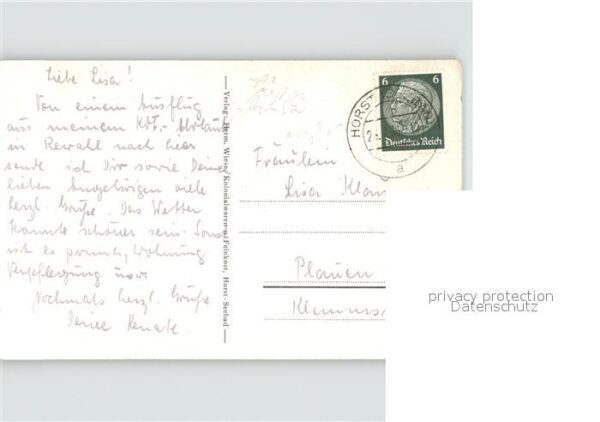 Liebe Lisa!
Von einem Ausflug
aus meinem KdF.-Urlaub
in Rewahl nach hier
sende ich Dir sowie Deinen
lieben Angehörigen viele
herzl. Grüße. Das Wetter
könnte schöner sein. Sonst
ist es prima, Wohnung
Verpflegung usw.
Nochmals herzl. Grüße
Deine Renate.
Verlag: Herm. Wiese, Kolonialwaren u. Feinkost, Horst-Seebad
6 6
Deutsches Reich
HORST
a
Fräulein
Lisa
Plauen
privacy protection
Datenschutz